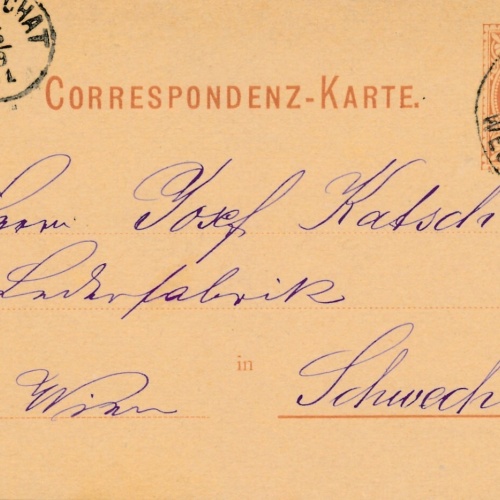 CHAT
CORRESPONDENZ-KARTE.
Herrn Josef Katsch
Lederfabrik
in
Wien Schwech